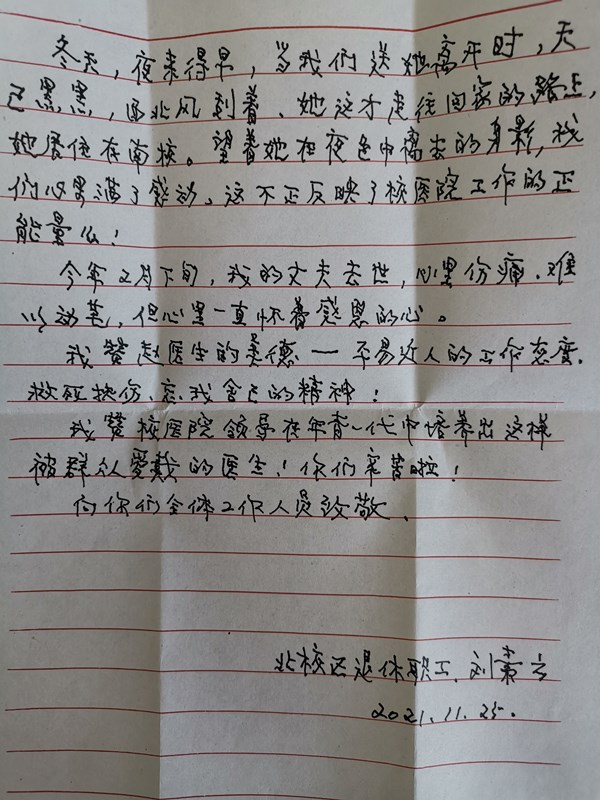 冬天，夜来得早，当我们送她离开时，天
已黑黑，西北风刮着、她这才走往回家的路上，
她居住在南校。望着她在夜色中离去的身影，我
们心里满了感动。这不正反映了校医院工作的正
能量么！
今年2月下旬，我的丈夫去世，心里伤痛、难
以动笔，但心里一直怀着感恩的心。
我赞赵医生的美德——平易近人的工作态度、
救死扶伤、忘我舍己的精神！
我赞校医院领导在年青一代中培养出这样
被群众爱戴的医生！你们辛苦啦！
向你们全体工作人员致敬、
北校区退休职工、刘
2021.11.25.